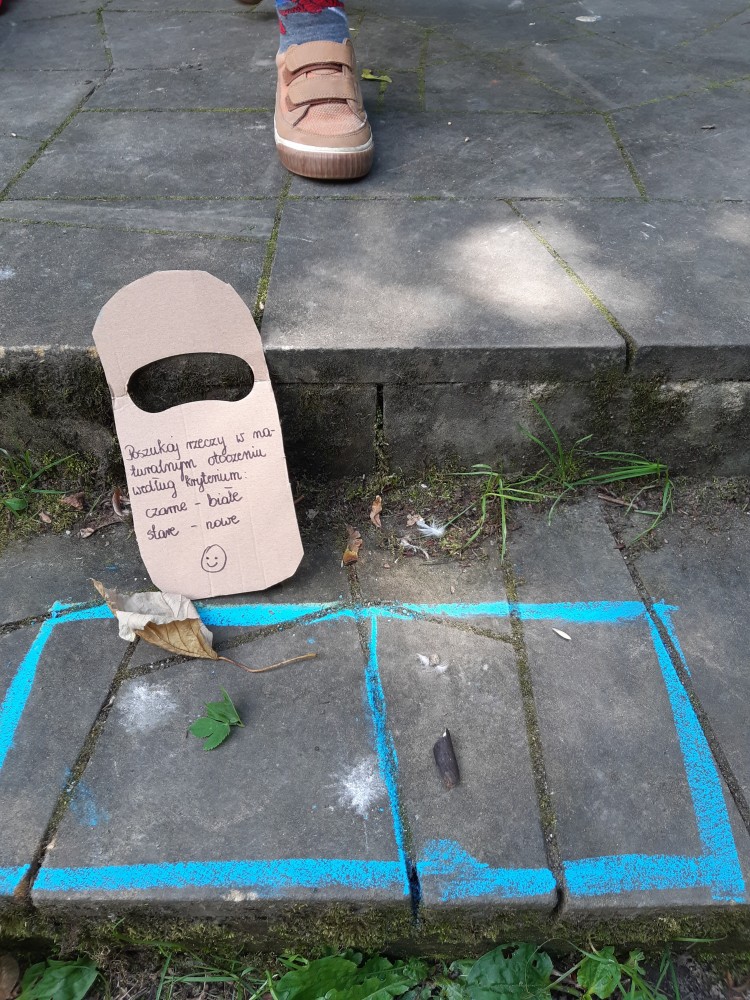 Poszukaj rzeczy w na-
turalnym otoczeniu
według kryterium:
czarne - białe
stare - nowe